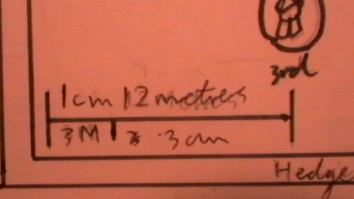 3rd
1cm 12 metres
3M .3cm
Hedge